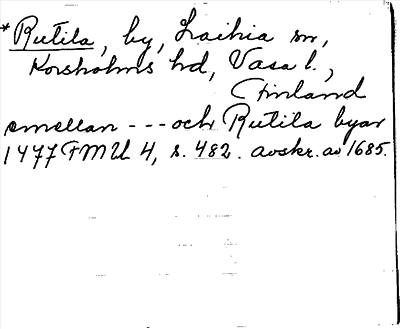 *Rutila, by, Laihia sn,
Korsholms hd, Vasa l.,
Finland
emellan --- och Rutila byar
1477 FMU 4, s. 482. avskr. av 1685.